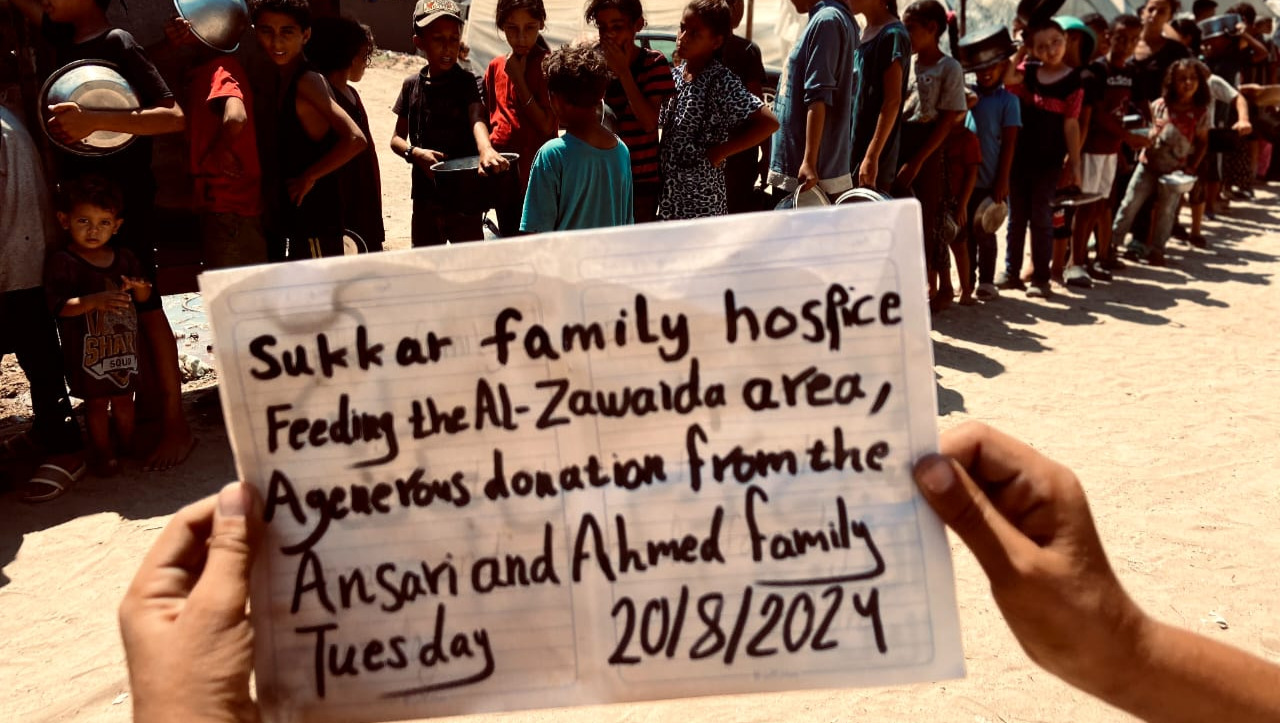 Sukkar family hospice
Feeding the Al-Zawaida area,
A generous donation from the
Ansari and Ahmed family
Tuesday 20/8/2024
SHAR
SQUD